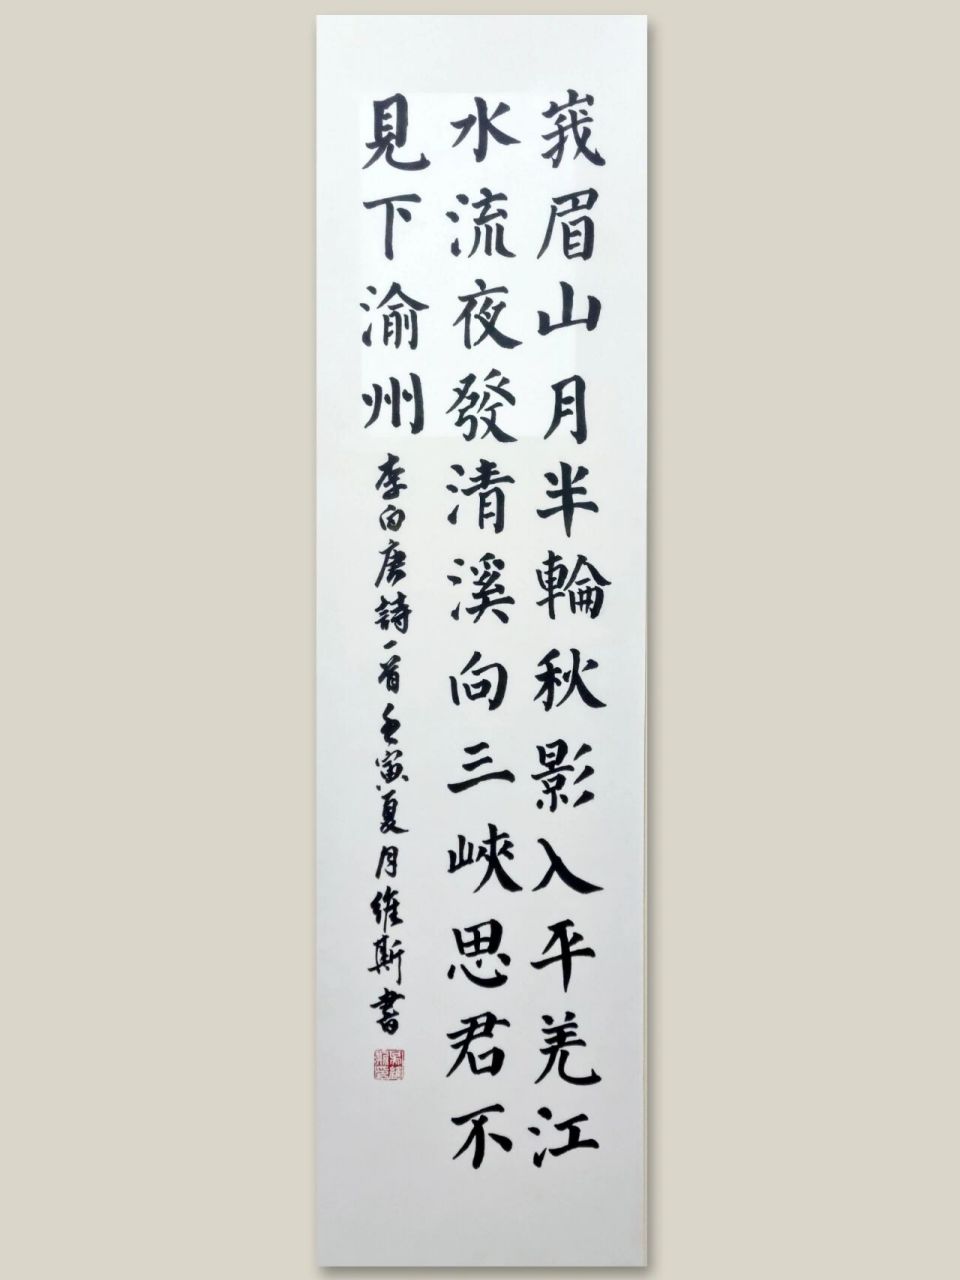 峩眉山月半輪秋影入平羌江
水流夜發清溪向三峽思君不
見下渝州
李白唐詩一首壬寅夏月維斯書